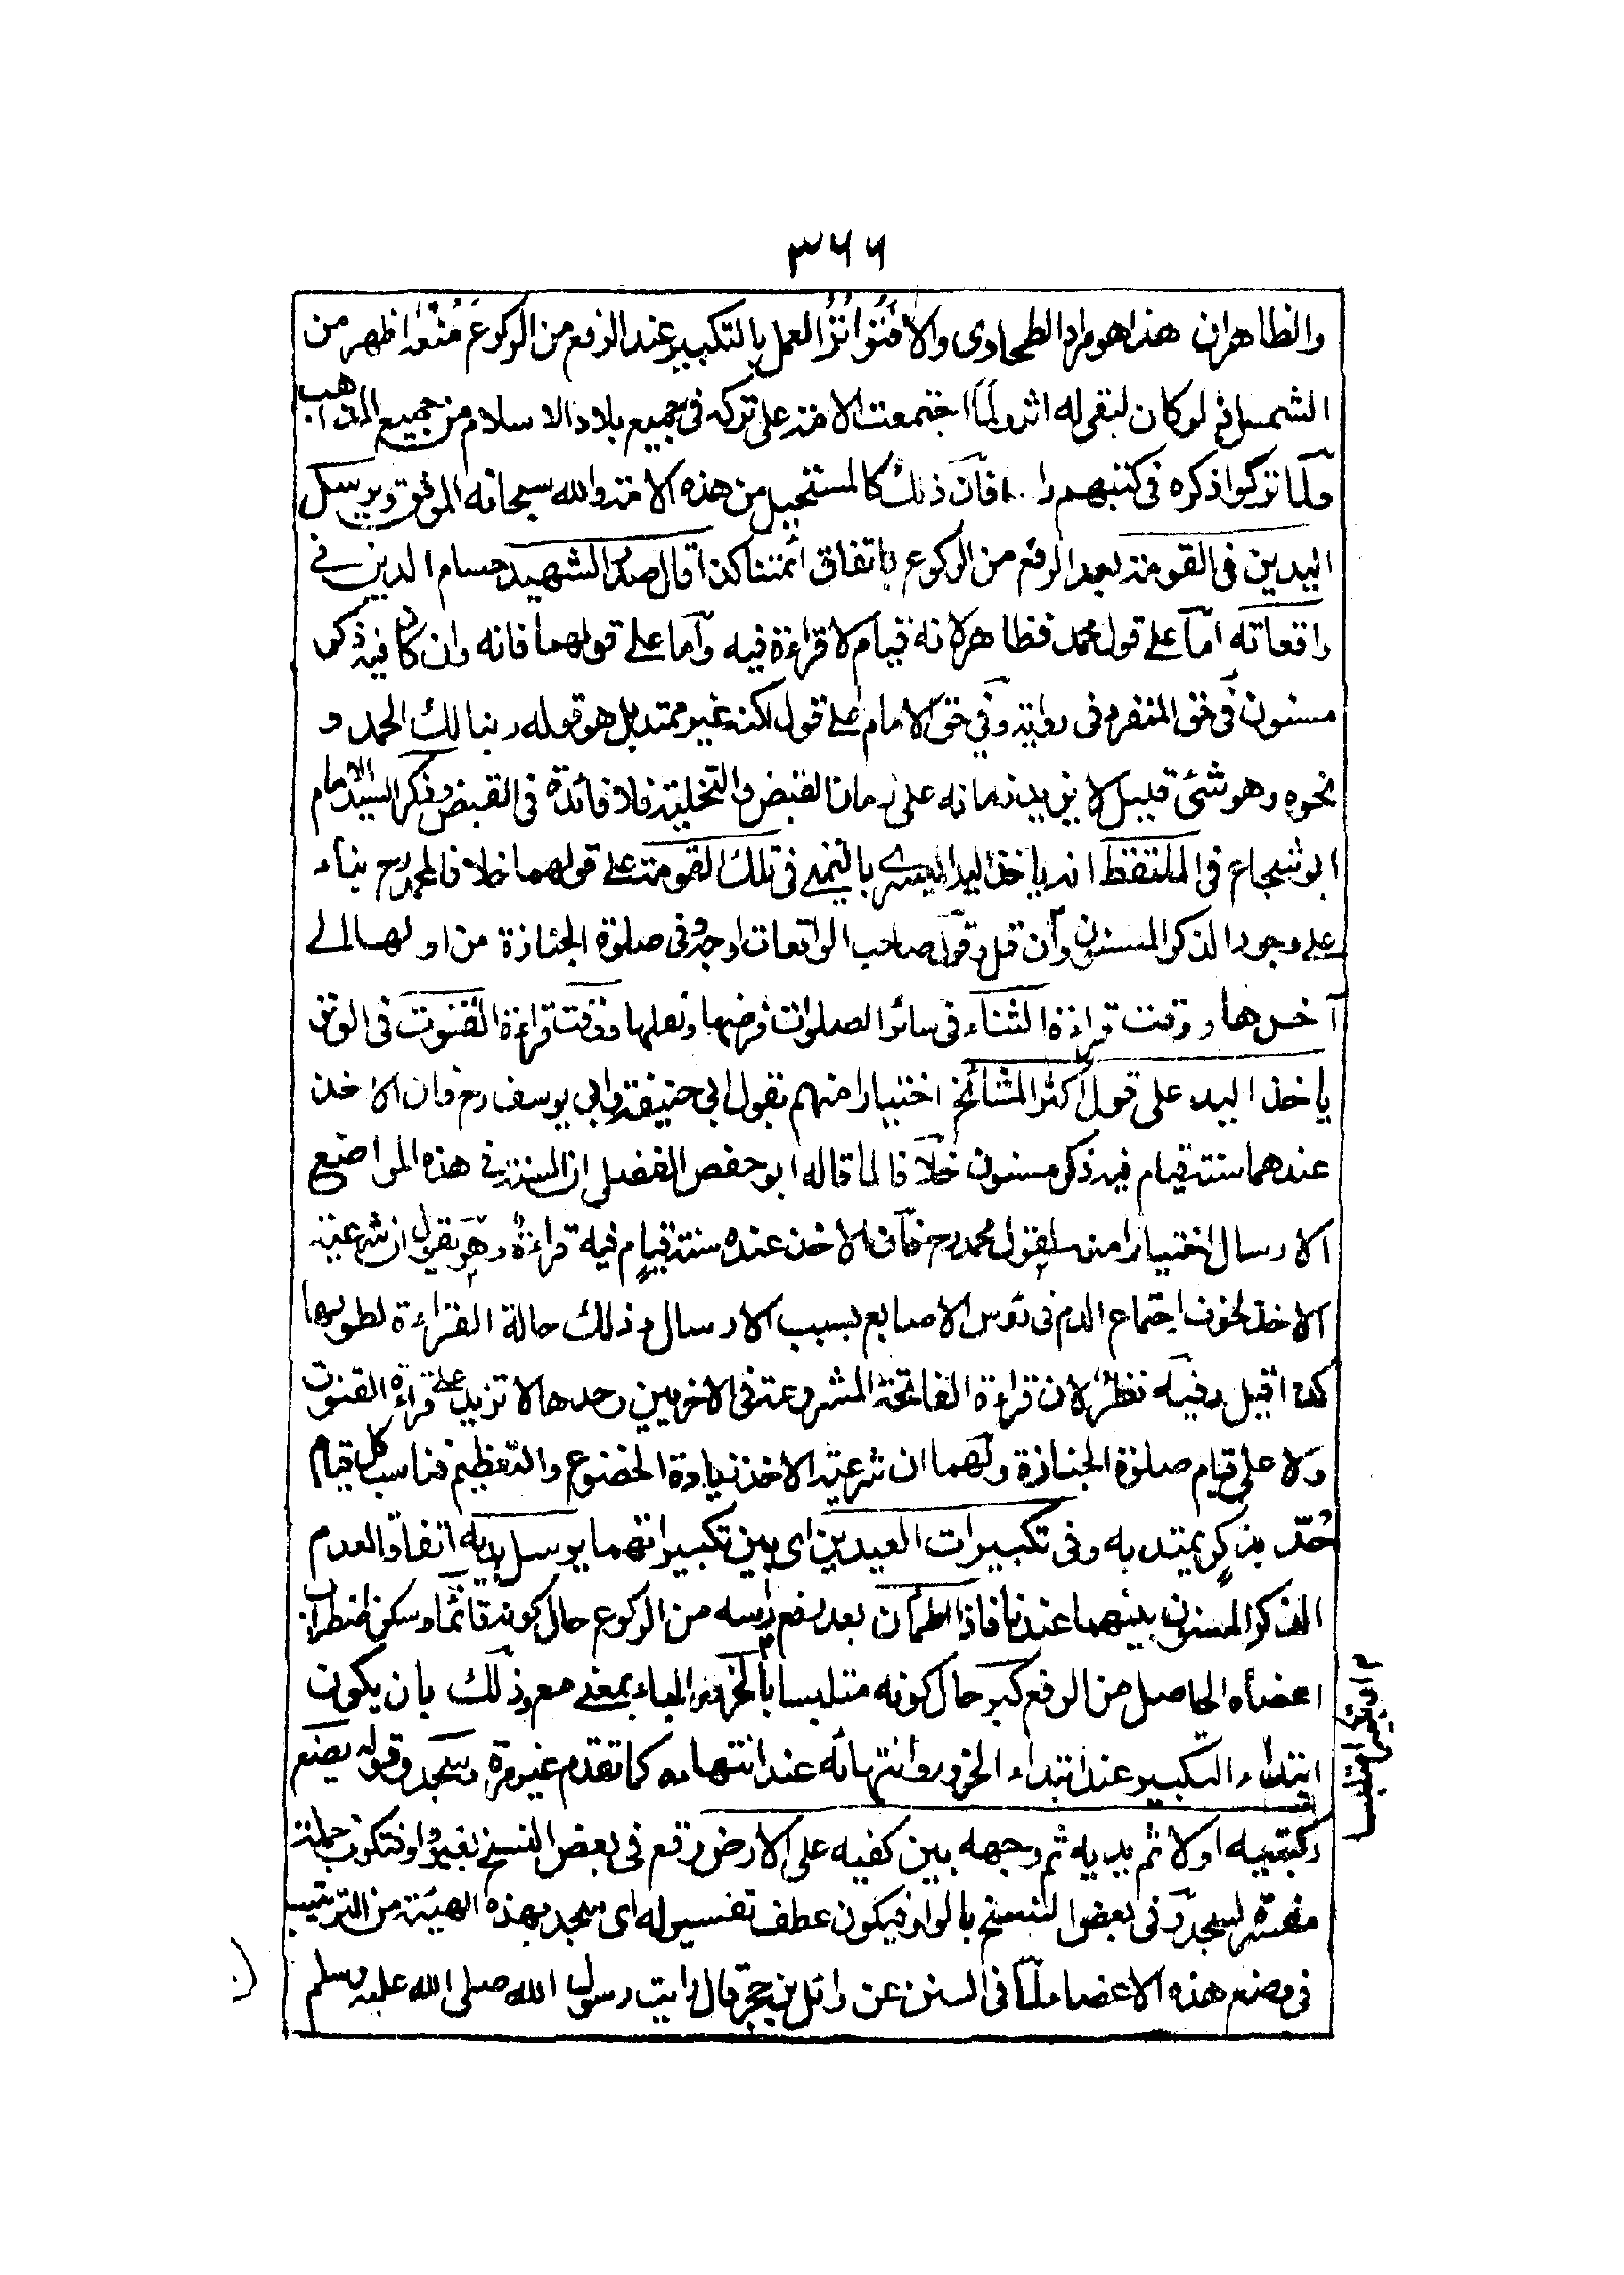 ٣٦٦
والظاهر ان هذا هو مراد الطحاوى والا فتواتر العمل بالتكبير عند الرفع من الركوع اظهر من
الشمس لو كان لبقى له اثر ولما اجتمعت الامة على تركه فى جميع بلاد الاسلام من جميع المذاهب
ولما تركوا ذكره فى كتبهم فان ذلك كالمستحيل من هذه الامة والله سبحانه الموفق ويرسل
اليدين فى القومة بعد الرفع من الركوع باتفاق ائمتنا كذا قال صدر الشهيد حسام الدين فى
واقعاته اما على قول محمد فظاهر لانه قيام لا قراءة فيه واما على قولهما فانه وان كان فيه ذكر
مسنون فى حق المنفرد فى رواية وفي حق الامام على قول لكنه غير ممتد بل هو قوله ربنا لك الحمد و
نحوه وهو شئ قليل لا يزيد زمانه على زمان القبض والتخلية فلا فائدة فى القبض وذكر السيد الامام
ابو شجاع فى الملتقط انه ياخذ اليد اليسرى باليمنى فى تلك القومة على قولهما خلافا لمحمد رح بناء
على وجود الذكر المسنون وان قل وقول صاحب الواقعات اوجه وفى صلوة الجنازة من اولها الى
آخرها ووقت قراءة الثناء فى سائر الصلوات فرضها ونفلها ووقت قراءة القنوت فى الوتر
ياخذ اليد على قول اكثر المشائخ اختيارا منهم بقول ابي حنيفة وابي يوسف رح فان الاخذ
عندهما سنة قيام فيه ذكر مسنون خلافا لما قاله ابو حفص الفضلى ان السنة فى هذه المواضع
الارسال اختيارا منه لقول محمد رح فان الاخذ عنده سنة قيام فيه قراءة وهو يقول ان شرعية
الاخذ لخوف اجتماع الدم فى رؤس الاصابع بسبب الارسال وذلك حالة القراءة لطولها
كذا قيل وفيه نظر لان قراءة الفاتحة المشروعة فى الاخريين وحدها لا تزيد على قراءة القنوت
ولا على قيام صلوة الجنازة ولهما ان شرعية الاخذ زيادة الخضوع والتعظيم فناسب كل قيام
حُدّ بذكرٍ يمتد به وفى تكبيرات العيدين اى بين تكبيراتهما يرسل يديه اتفاقا لعدم
الذكر المسنون بينهما عندنا فاذا اطمأن بعد رفع راسه من الركوع حال كونه قائما وسكن اضطراب
اعضاه الحاصل من الرفع كبر حال كونه متلبسا بالخرور الباء بمعنى مع وذلك بان يكون
ابتداء التكبير عند ابتداء الخرور وانتهائه عند انتهاءه كما تقدم غير مرة وسجد وقوله يضع
ركبتيه اولا ثم يديه ثم وجهه بين كفيه على الارض وقع فى بعض النسخ بغير واو فتكون جملة
مفسرة لسجد وفى بعض النسخ بالواو فيكون عطف تفسير له اى سجد بهذه الهيئة من الترتيب
فى وضع هذه الاعضا لما فى السنن عن وائل بن حجر قال رايت رسول الله صلى الله عليه وسلم